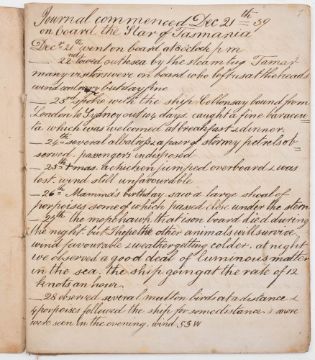 Journal commenced Dec 21th 59
on board the Star of Tasmania
Dec 21st went on board at six oclock p m
22nd towed out sea by the steam tug Tamar
many visitors were on board who left us at the heads
wind contrary but day fine
25th spoke with the ship Collonsay bound from
London to Sydney out 104 days caught a fine baracou
ta which was welcomed at breakfast & dinner.
24th several albatross a pair of stormy petrels ob=
served. passengers indisposed
25th Xmas. a chicken jumped overboard & was
lost. wind still unfavourable
26th Mamma's birthday saw a large shoal of
porpoises some of which passed close under the stern
the mopehawk that is on board died during
the night but I hope the other animals will survive
wind favourable & weather getting colder. at night
we observed a good deal of luminous matter
in the sea, the ship going at the rate of 12
knots an hour.
28 observed several mutton birds at a distance &
4 porpoises followed the ship for some distance & more
were seen in the evening. wind S S W